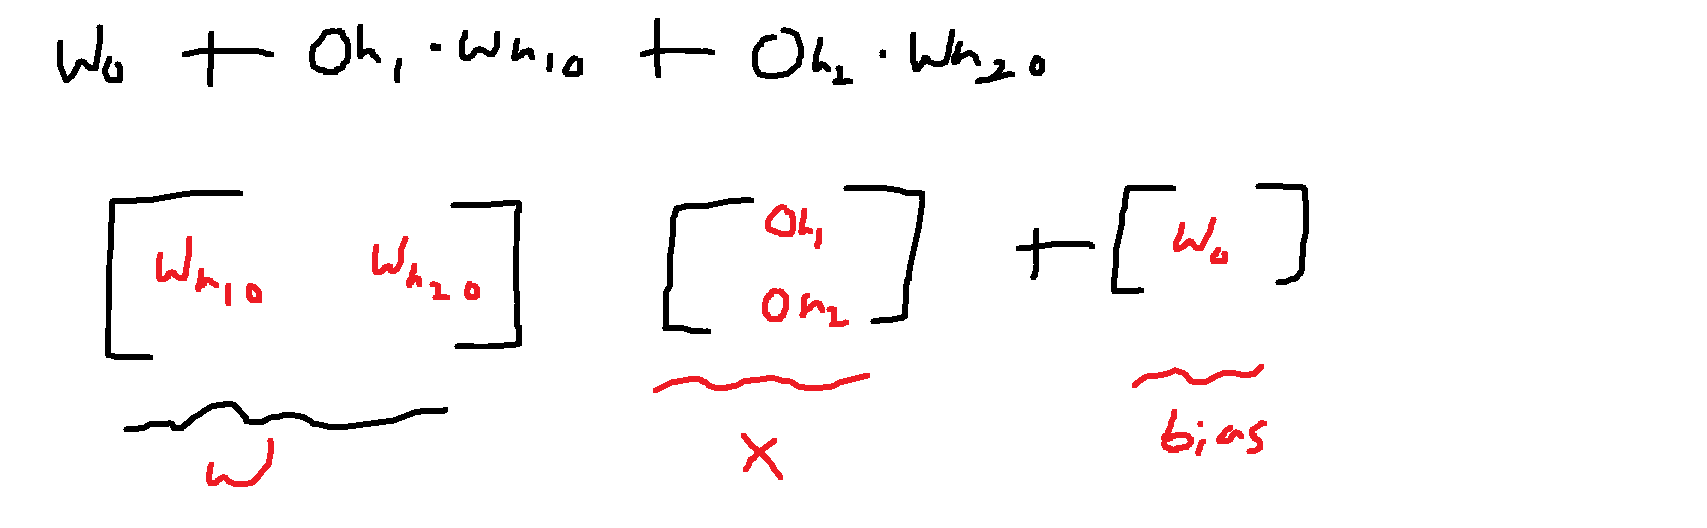 W₀ + Oh₁ · Wh₁₀ + Oh₂ · Wh₂₀
[ Wh₁₀ Wh₂₀ ] [ Oh₁ + [ W₀ ]
Oh₂ ]
W X bias